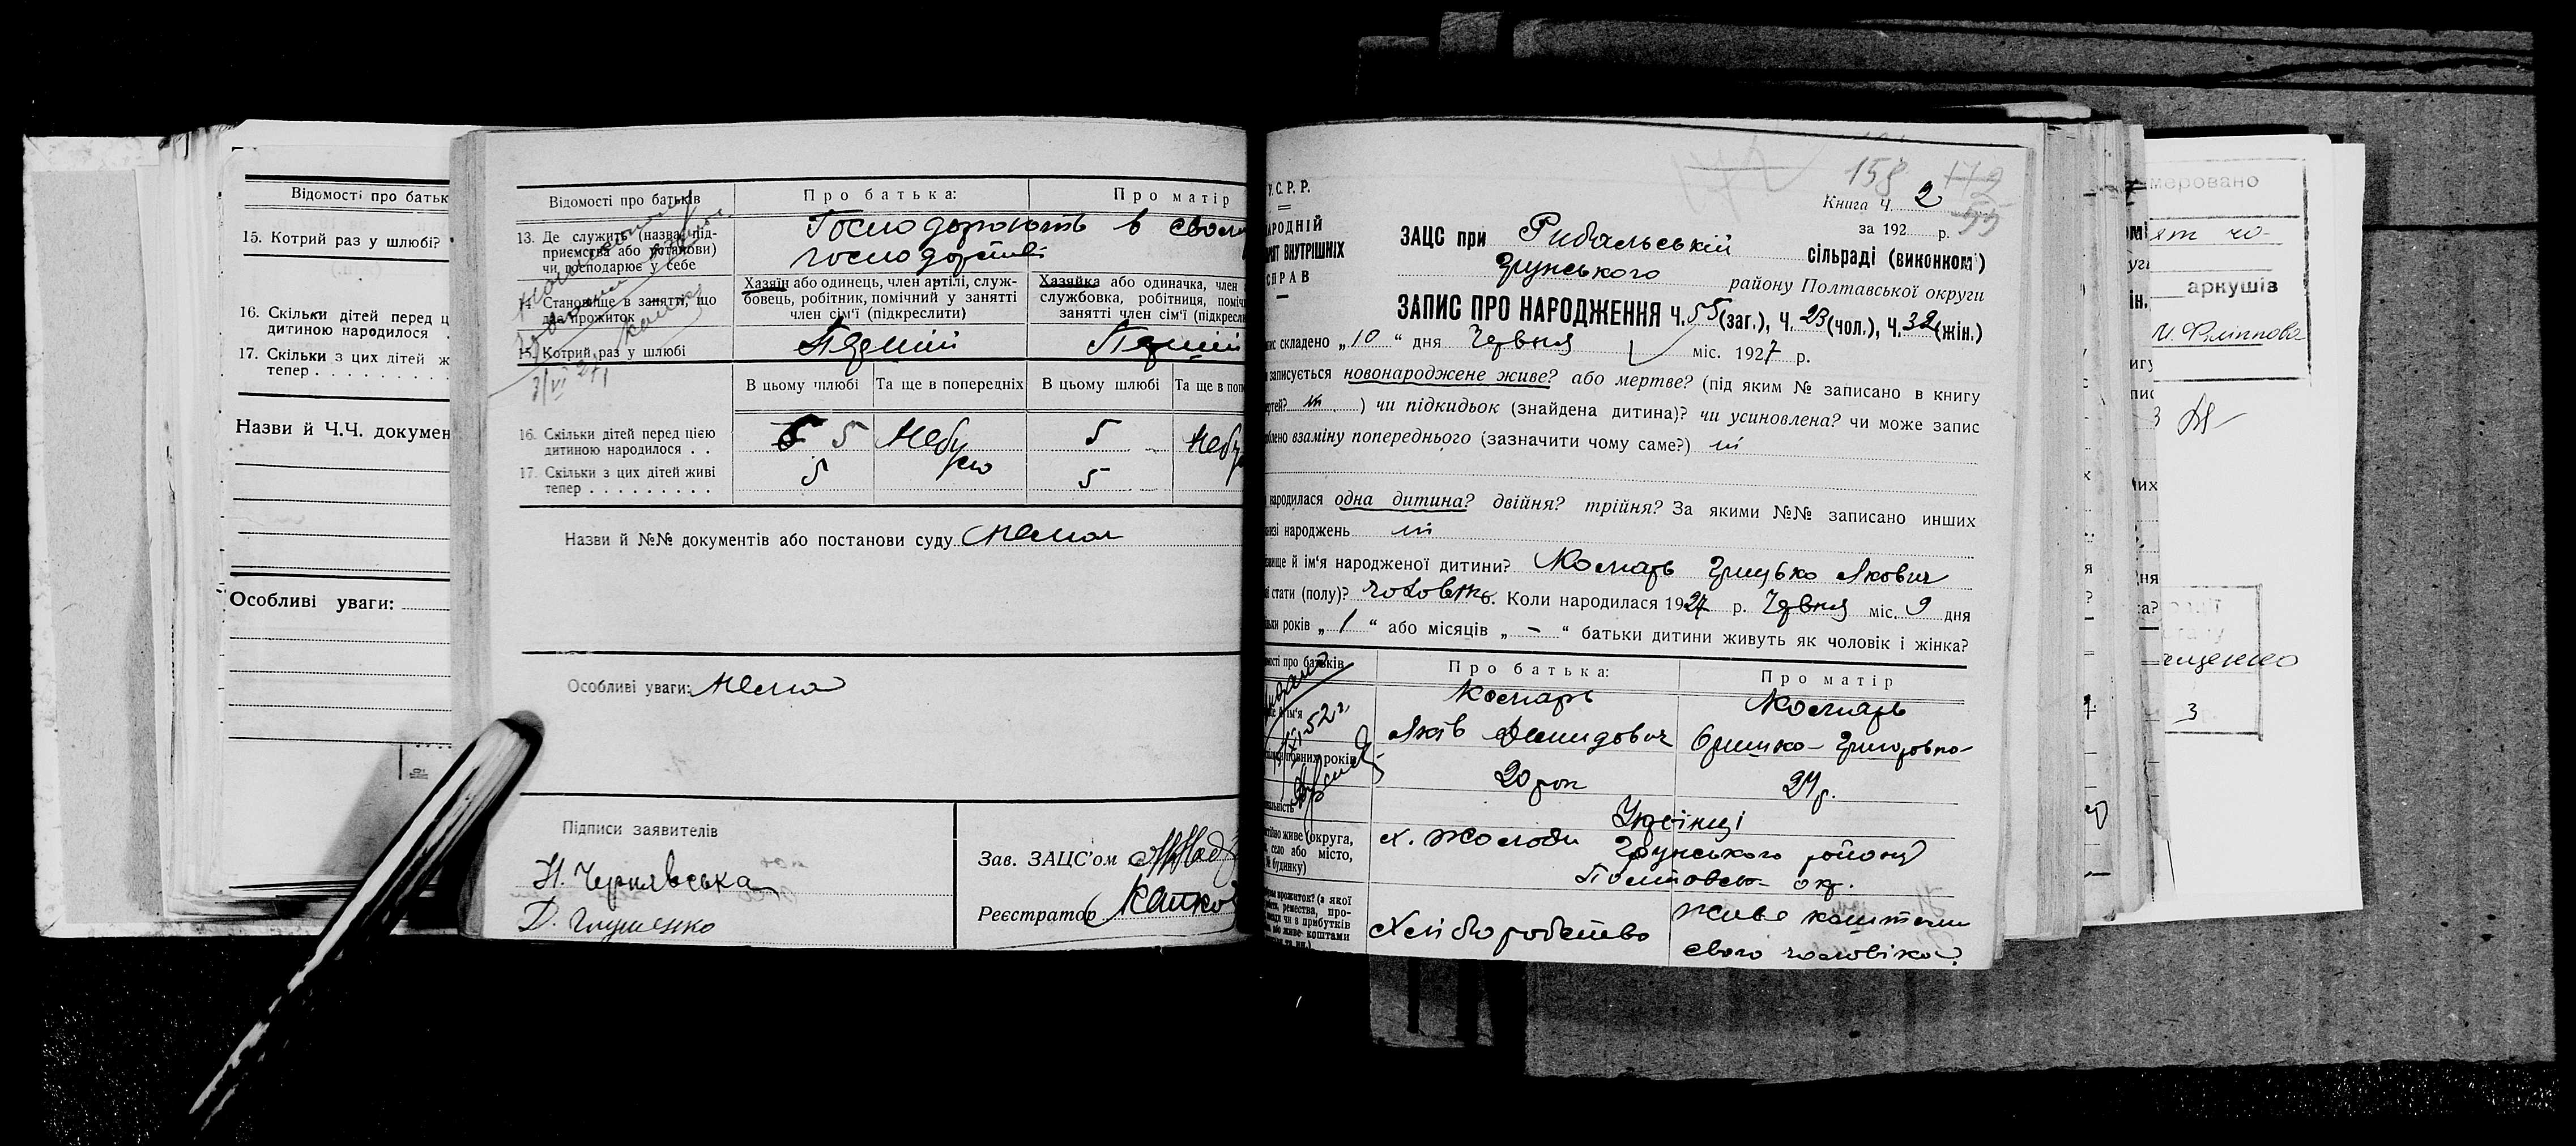 Відомості про батьк
15. Котрий раз у шлюбі?
16. Скільки дітей перед ц
дитиною народилося .
17. Скільки з цих дітей ж
тепер . . . . . . . . .
Назви й Ч.Ч. докумен
Особливі уваги:
Відомості про батьків
Про батька:
Про матір
13. Де служить (назва під-
приємства або установи)
чи господарює у себе
Господорюють в своем
господорстві
14. Становище в занятті, що
дає прожиток
Хазяїн або одинець, член артілі, служ-
бовець, робітник, помічний у занятті
член сім'ї (підкреслити)
Хазяйка або одиначка, член
службовка, робітниця, поміч
занятті член сім'ї (підкресли
15. Котрий раз у шлюбі
Перший
Перший
3/VI 27
В цьому шлюбі
Та ще в попередніх
В цьому шлюбі
Та ще в поп
16. Скільки дітей перед цією
дитиною народилося . .
5
Небуло
5
Небу
17. Скільки з цих дітей живі
тепер . . . . . . . . .
5
5
Назви й №№ документів або постанови суду Нема
Особливі уваги: Нема
Підписи заявителів
Н. Чернявська
Д. Глушенко
Зав. ЗАЦС'ом
Реєстратор
У. С. Р. Р.
АРОДНІЙ
ВНУТРІШНІХ
СПРАВ
158 172
Книга Ч. 2
за 192 р. 55
ЗАЦС при Рибальській сільраді (виконком)
Грунського району Полтавської округи
ЗАПИС ПРО НАРОДЖЕННЯ Ч. 55 (заг.), Ч. 23 (чол.), Ч. 32 (жін.)
пис складено „10“ дня Червня міс. 1927 р.
записується новонароджене живе? або мертве? (під яким № записано в книгу
мертей? ні ) чи підкидьок (знайдена дитина)? чи усиновлена? чи може запис
роблено взаміну попереднього (зазначити чому саме?) ні
народилася одна дитина? двійня? трійня? За якими №№ записано инших
книзі народжень ні
звище й ім'я народженої дитини? Комарь Грицько Якович
стати (полу)? чоловіч. Коли народилася 1927 р. Червня міс. 9 дня
льки років „1“ або місяців „-“ батьки дитини живуть як чоловік і жінка?
мості про батьків
Про батька:
Про матір
ім'я
Комарь
Яків Демидович
Комарь
Оришка Григоровна
повних років
20 рок
24 р.
Українці
тійно живе (округа,
село або місто,
№ будинку)
х. Жолоби Грунського району
Полтовськ окр.
прожиток? (з якої
ремества, про-
чи з прибутків
або живе коштами
Хліборобство
Живе коштами
свого чоловіка
меровано
аркушів
И. Филиппова
3